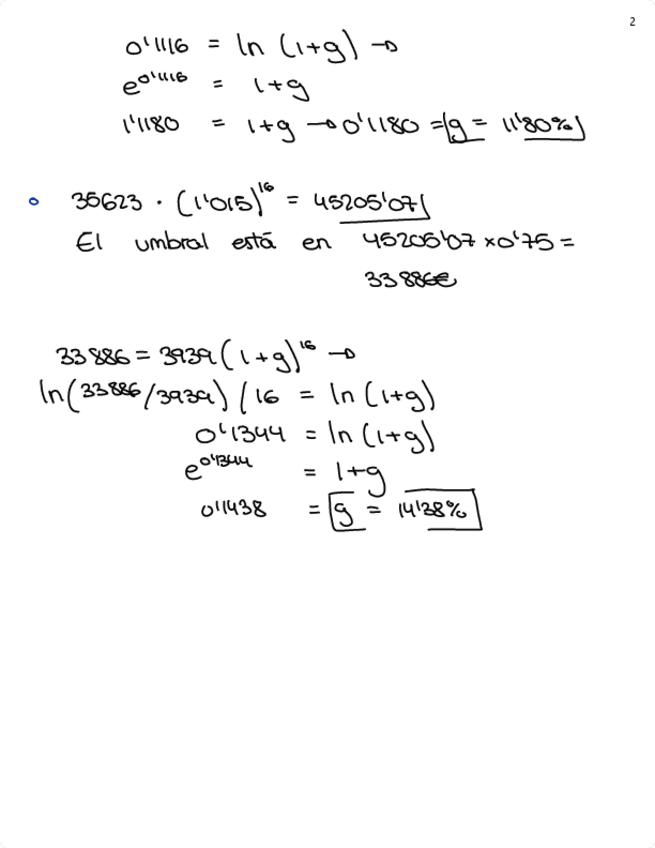 2
0'1116 = ln (1+g) →
e^0'1116 = 1+g
1'1180 = 1+g → 0'1180 = g = 11'80%
35623 · (1'015)^16 = 45205'07
El umbral está en 45205'07 x0'75 =
33886€
33886 = 3939 (1+g)^16 →
ln(33886/3939) / 16 = ln (1+g)
0'1344 = ln (1+g)
e^0'1344 = 1+g
0'1438 = g = 14'38%